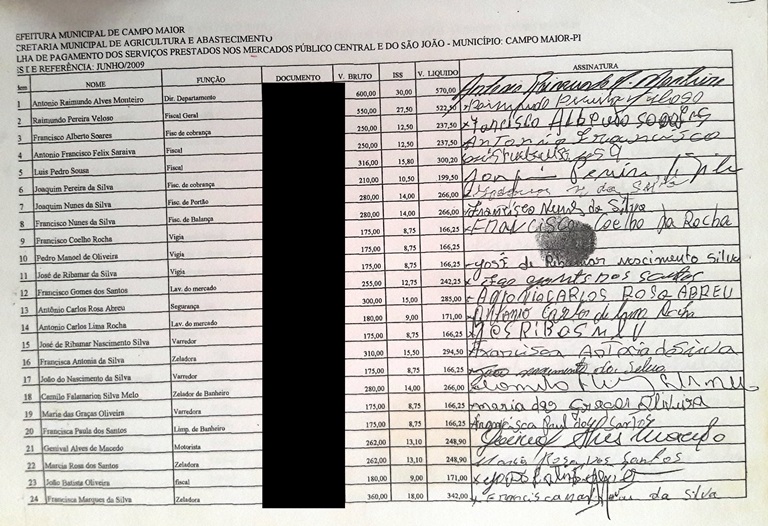 EFEITURA MUNICIPAL DE CAMPO MAIOR
CRETARIA MUNICIPAL DE AGRICULTURA E ABASTECIMENTO
LHA DE PAGAMENTO DOS SERVIÇOS PRESTADOS NOS MERCADOS PÚBLICO CENTRAL E DO SÃO JOÃO - MUNICÍPIO: CAMPO MAIOR-PI
REFERÊNCIA: JUNHO/2009
NOME FUNÇÃO DOCUMENTO V. BRUTO ISS V. LIQUIDO ASSINATURA
1 Antonio Raimundo Alves Monteiro Dir. Departamento 600,00 30,00 570,00 Antonio Raimundo A. Monteiro
2 Raimundo Pereira Veloso Fiscal Geral 550,00 27,50 522,50 Raimundo Pereira Veloso
3 Francisco Alberto Soares Fisc de cobrança 250,00 12,50 237,50 Francisco Alberto Soares
4 Antonio Francisco Felix Saraiva Fiscal 250,00 12,50 237,50 Antonio Francisco
5 Luis Pedro Sousa Fiscal 316,00 15,80 300,20
6 Joaquim Pereira da Silva Fisc. de cobrança 210,00 10,50 199,50 Joaquim Pereira da Silva
7 Joaquim Nunes da Silva Fisc. de Portão 280,00 14,00 266,00 da Silva
8 Francisco Nunes da Silva Fisc. de Balança 280,00 14,00 266,00 Francisco Nunes da Silva
9 Francisco Coelho Rocha Vigia 175,00 8,75 166,25 Francisco Coelho da Rocha
10 Pedro Manoel de Oliveira Vigia 175,00 8,75 166,25
11 José de Ribamar da Silva Vigia 175,00 8,75 166,25 José de Ribamar nascimento silva
12 Francisco Gomes dos Santos Lav. do mercado 255,00 12,75 242,25 dos Santos
13 Antônio Carlos Rosa Abreu Segurança 300,00 15,00 285,00 ANTONIO CARLOS ROSA ABREU
14 Antonio Carlos Lima Rocha Lav. do mercado 180,00 9,00 171,00 Antonio Carlos de Lima Rocha
15 José de Ribamar Nascimento Silva Varredor 175,00 8,75 166,25
16 Francisca Antonia da Silva Zeladora 310,00 15,50 294,50 Francisca Antonia da Silva
17 João do Nascimento da Silva Varredor 175,00 8,75 166,25 João nascimento da Silva
18 Camilo Falamarion Silva Melo Zelador de Banheiro 280,00 14,00 266,00 Camilo
19 Marie das Graças Oliveira Varredora 175,00 8,75 166,25 maria das Graças Oliveira
20 Francisca Paula dos Santos Limp. de Banheiro 175,00 8,75 166,25 Francisca Paul dos Santos
21 Genival Alves de Macedo Motorista 262,00 13,10 248,90 Genival Alves Macedo
22 Marcia Rosa dos Santos Zeladora 262,00 13,10 248,90 Marcia Rosa dos Santos
23 João Batista Oliveira fiscal 180,00 9,00 171,00
24 Francisca Marques da Silva Zeladora 360,00 18,00 342,00 Francisca da Silva